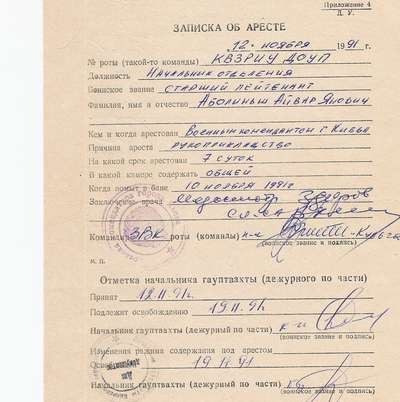 Приложение 4
Д. У.
ЗАПИСКА ОБ АРЕСТЕ
„12" ноября 1991 г.
№ роты (такой-то команды) КВЗРИУ ДОУП
Должность Начальник отделения
Воинское звание старший лейтенант
Фамилия, имя и отчество Аболиньш Айвар Янович
Кем и когда арестован Военным комендантом г Киева
Причина ареста рукоприкладство
На какой срок арестован 7 суток
В какой камере содержать общей
Когда помыт в бане 10 ноября 1991г
Заключение врача Медосмотр Здоров
Командир ЗРК роты (команды)
(воинское звание и подпись)
м. п.
Отметка начальника гауптвахты (дежурного по части)
Принят 12.11.91.
Подлежит освобождению 19.11.91.
Начальник гауптвахты (дежурный по части) к-н
(воинское звание и подпись)
Изменения режима содержания под арестом
19.11.91
Начальник гауптвахты (дежурный по части)
(воинское звание и подпись)
Для документов